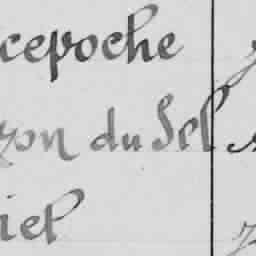 cepoche
zon du Sel
iel